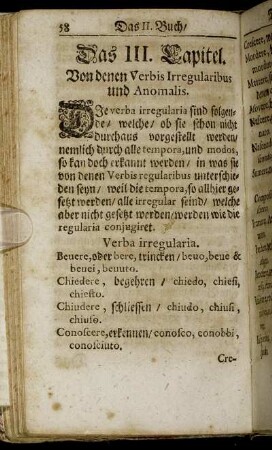 58 Das II. Buch/
Das III. Capitel.
Von denen Verbis Irregularibus
und Anomalis.
DJe verba irregularia sind folgen-
de/ welche/ ob sie schon nicht
durchaus vorgestellt werden/
nemlich durch alle tempora, und modos,
so kan doch erkannt werden/ in was sie
von denen Verbis regularibus unterschie-
den seyn/ weil die tempora, so allhier ge-
setzt werden/ alle irregular seind/ welche
aber nicht gesetzt werden/ werden wie die
regularia conjugiret.
Verba irregularia.
Bevere, oder bere, trincken/ beuo, beue &
beuei, beuuto.
Chiedere, begehren/ chiedo, chiesi,
chiesto.
Chiudere, schliessen/ chiudo, chiusi,
chiuso.
Conoscere, erkennen/ conosco, conobbi,
conosciuto.
Cre-